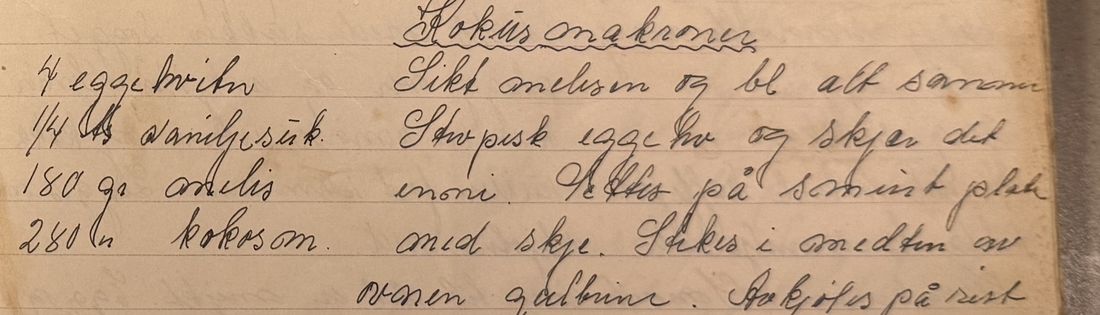 Kokusmakroner
4 eggehviter Sikt melisen og bl alt sammen
1/4 ts vaniljesuk. Stivpisk eggehv og skjær det
180 gr melis inni. Settes på smurt plate
280 " kokosm. med skje. Stekes i midten av
ovnen gulbrune. Avkjøles på rist